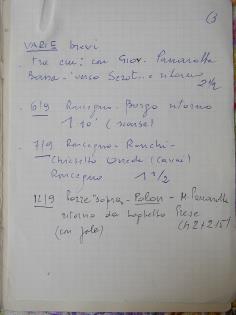 (3
VARIE brevi
tra cui: con Giov. Panarotta
verso ritorno
2 1/2
6/9 Roncegno - Borgo ritorno
1 10' (scarse)
7/9 Roncegno - Ronchi -
Chiesetta (Cavai)
Roncegno 1 1/2
12/9 Pozze "sopra - Palon - M. Panarotta
ritorno da Laghetto Prese
(con Jole) (h 2 + 2.15')